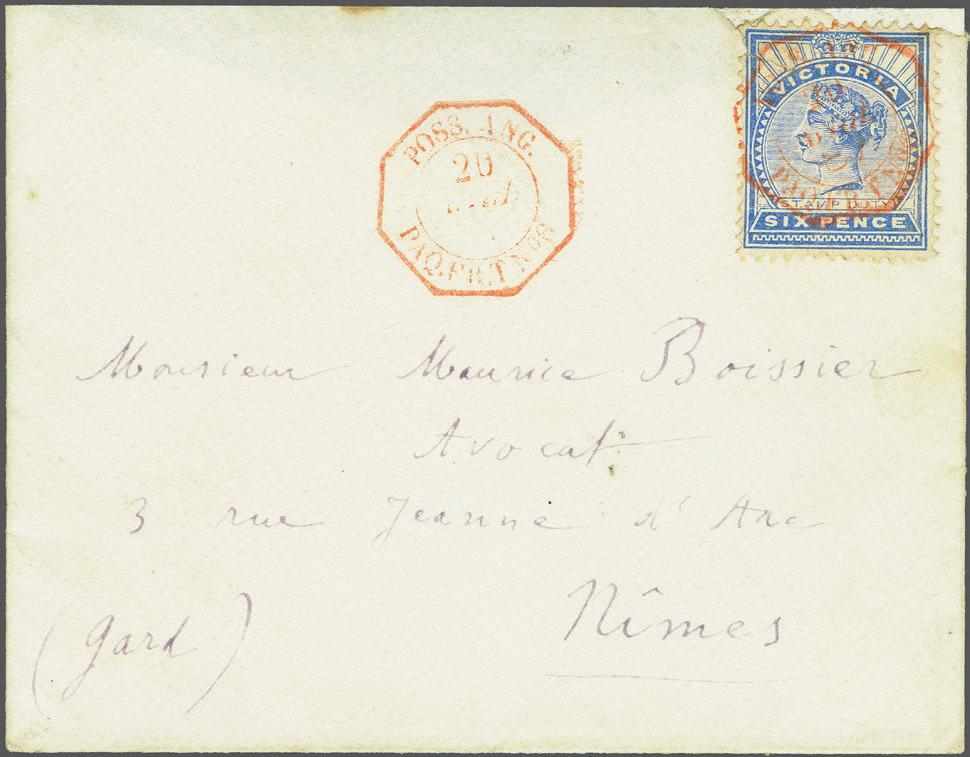 VICTORIA
STAMP DUTY
SIX PENCE
POSS. ANG.
20
PAQ. FR. T No 6
PAQ. FR. T No
Monsieur Maurice Boissier
Avocat
3 rue Jeanne d'Arc
Nîmes
(Gard)